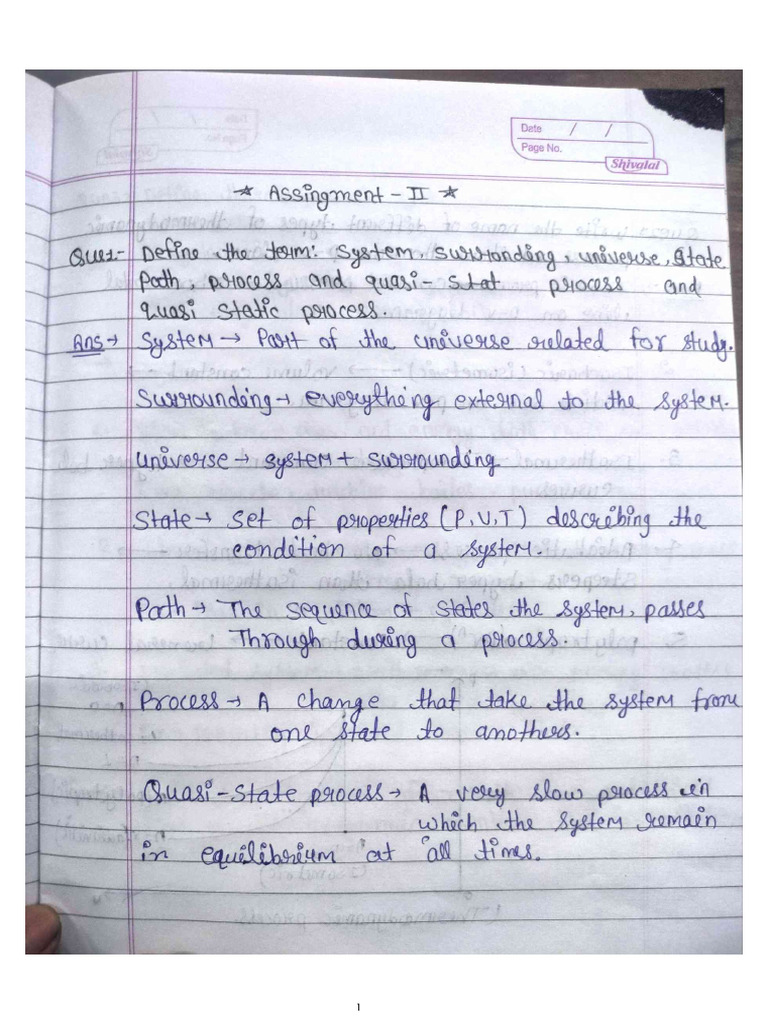 Date / /
Page No.
Shivalal
* Assingment - II *
Que1- Define the term: system, surronding, universe, State
Path, process and quasi-stat process and
quasi static process.
Ans → System → Part of the universe related for study.
Surrounding → everything external to the system.
Universe → system + surrounding
State → set of properties (P,V,T) describing the
condition of a system.
Path → The sequence of states the system, passes
Through during a process.
Process → A change that take the system from
one state to anothers.
Quasi-state process → A very slow process in
which the system remain
in equilibrium at all times.
1